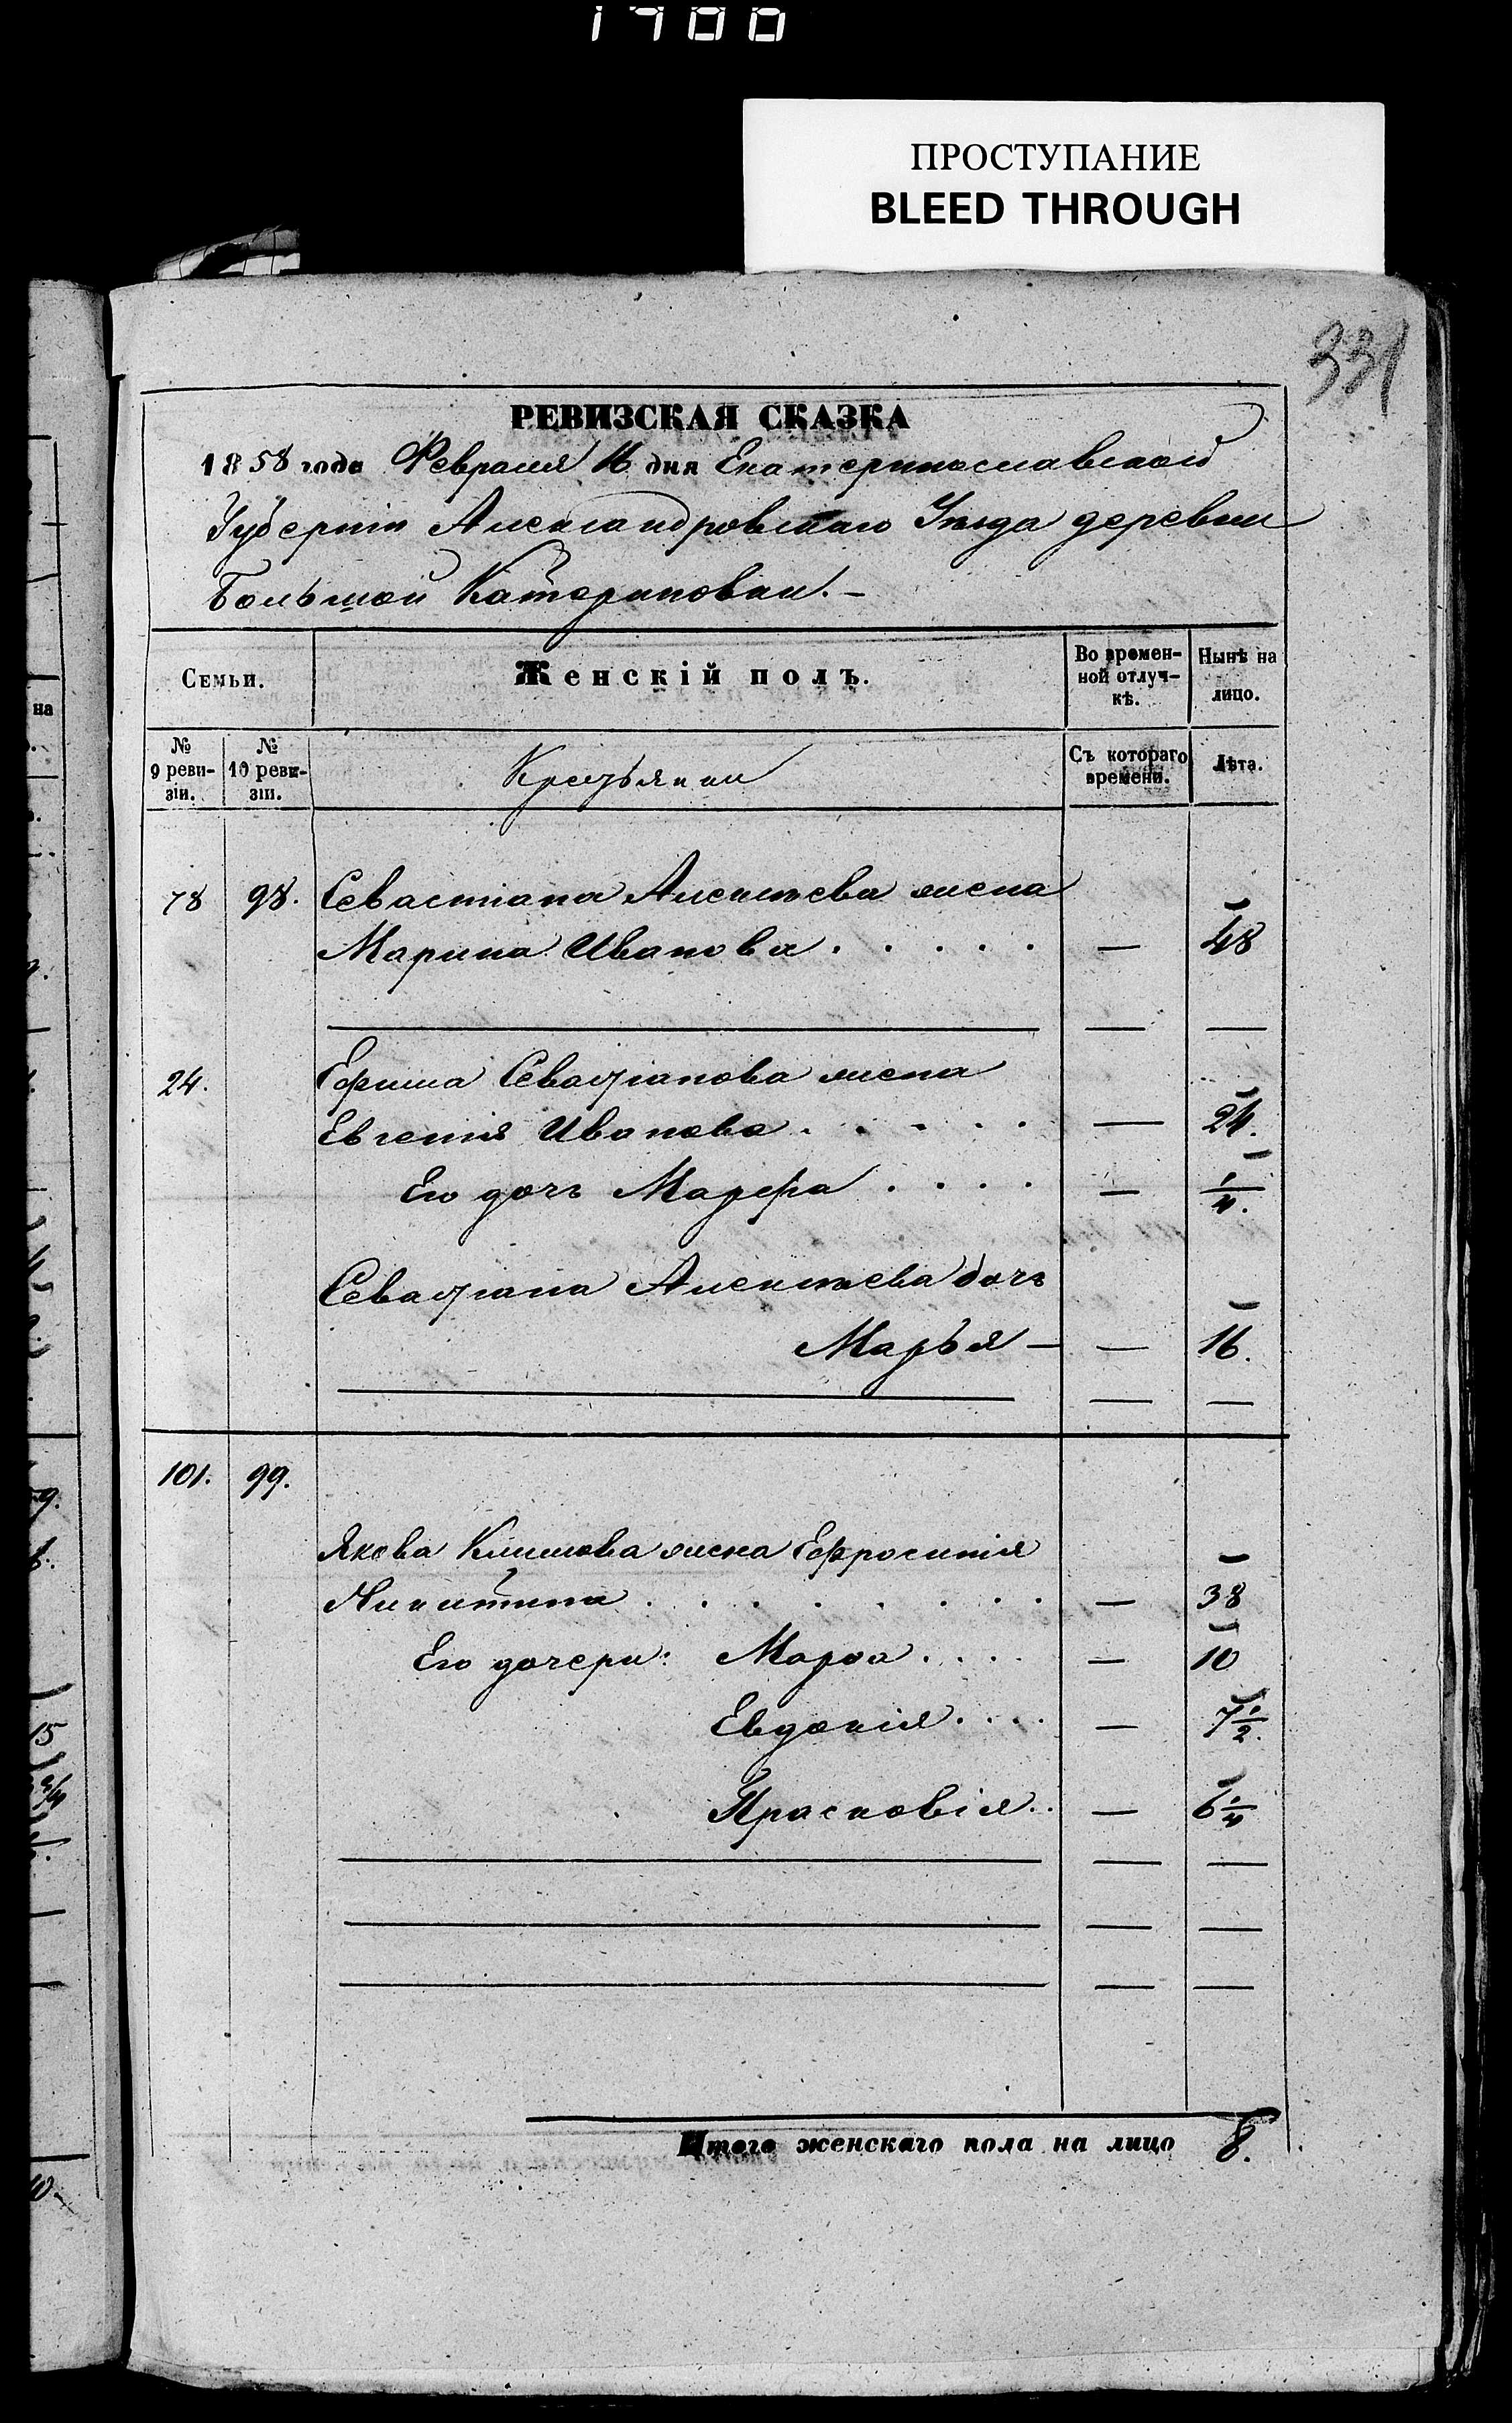 1700
ПРОСТУПАНИЕ
BLEED THROUGH
331
РЕВИЗСКАЯ СКАЗКА
1858 года Февраля 16 дня Екатеринославской
Губерніи Александровскаго Уѣзда деревни
Большой Катериновки.
Семьи.
Женскій полъ.
Во времен-
ной отлуч-
кѣ.
Нынѣ на
лицо.
№
9 реви-
зіи.
№
10 реви-
зіи.
Крестьянки
Съ котораго
времени.
Лѣта.
78 98. Севастіана Алексѣева жена
Марина Иванова . . . . . — 48
24. Ефима Севастіанова жена
Евгенія Иванова . . . . . — 24.
Его дочь Марфа . . . . — 1/4.
Севастіана Алексѣева дочь
Марья — — 16.
101. 99.
Якова Климова жена Ефросинія
Никитина . . . . . . . . — 38
Его дочери: Марѳа . . . . — 10
Евдокія . . . . — 7 1/2.
Прасковія . . — 6 1/4
Итого женскаго пола на лицо 8.
на
15